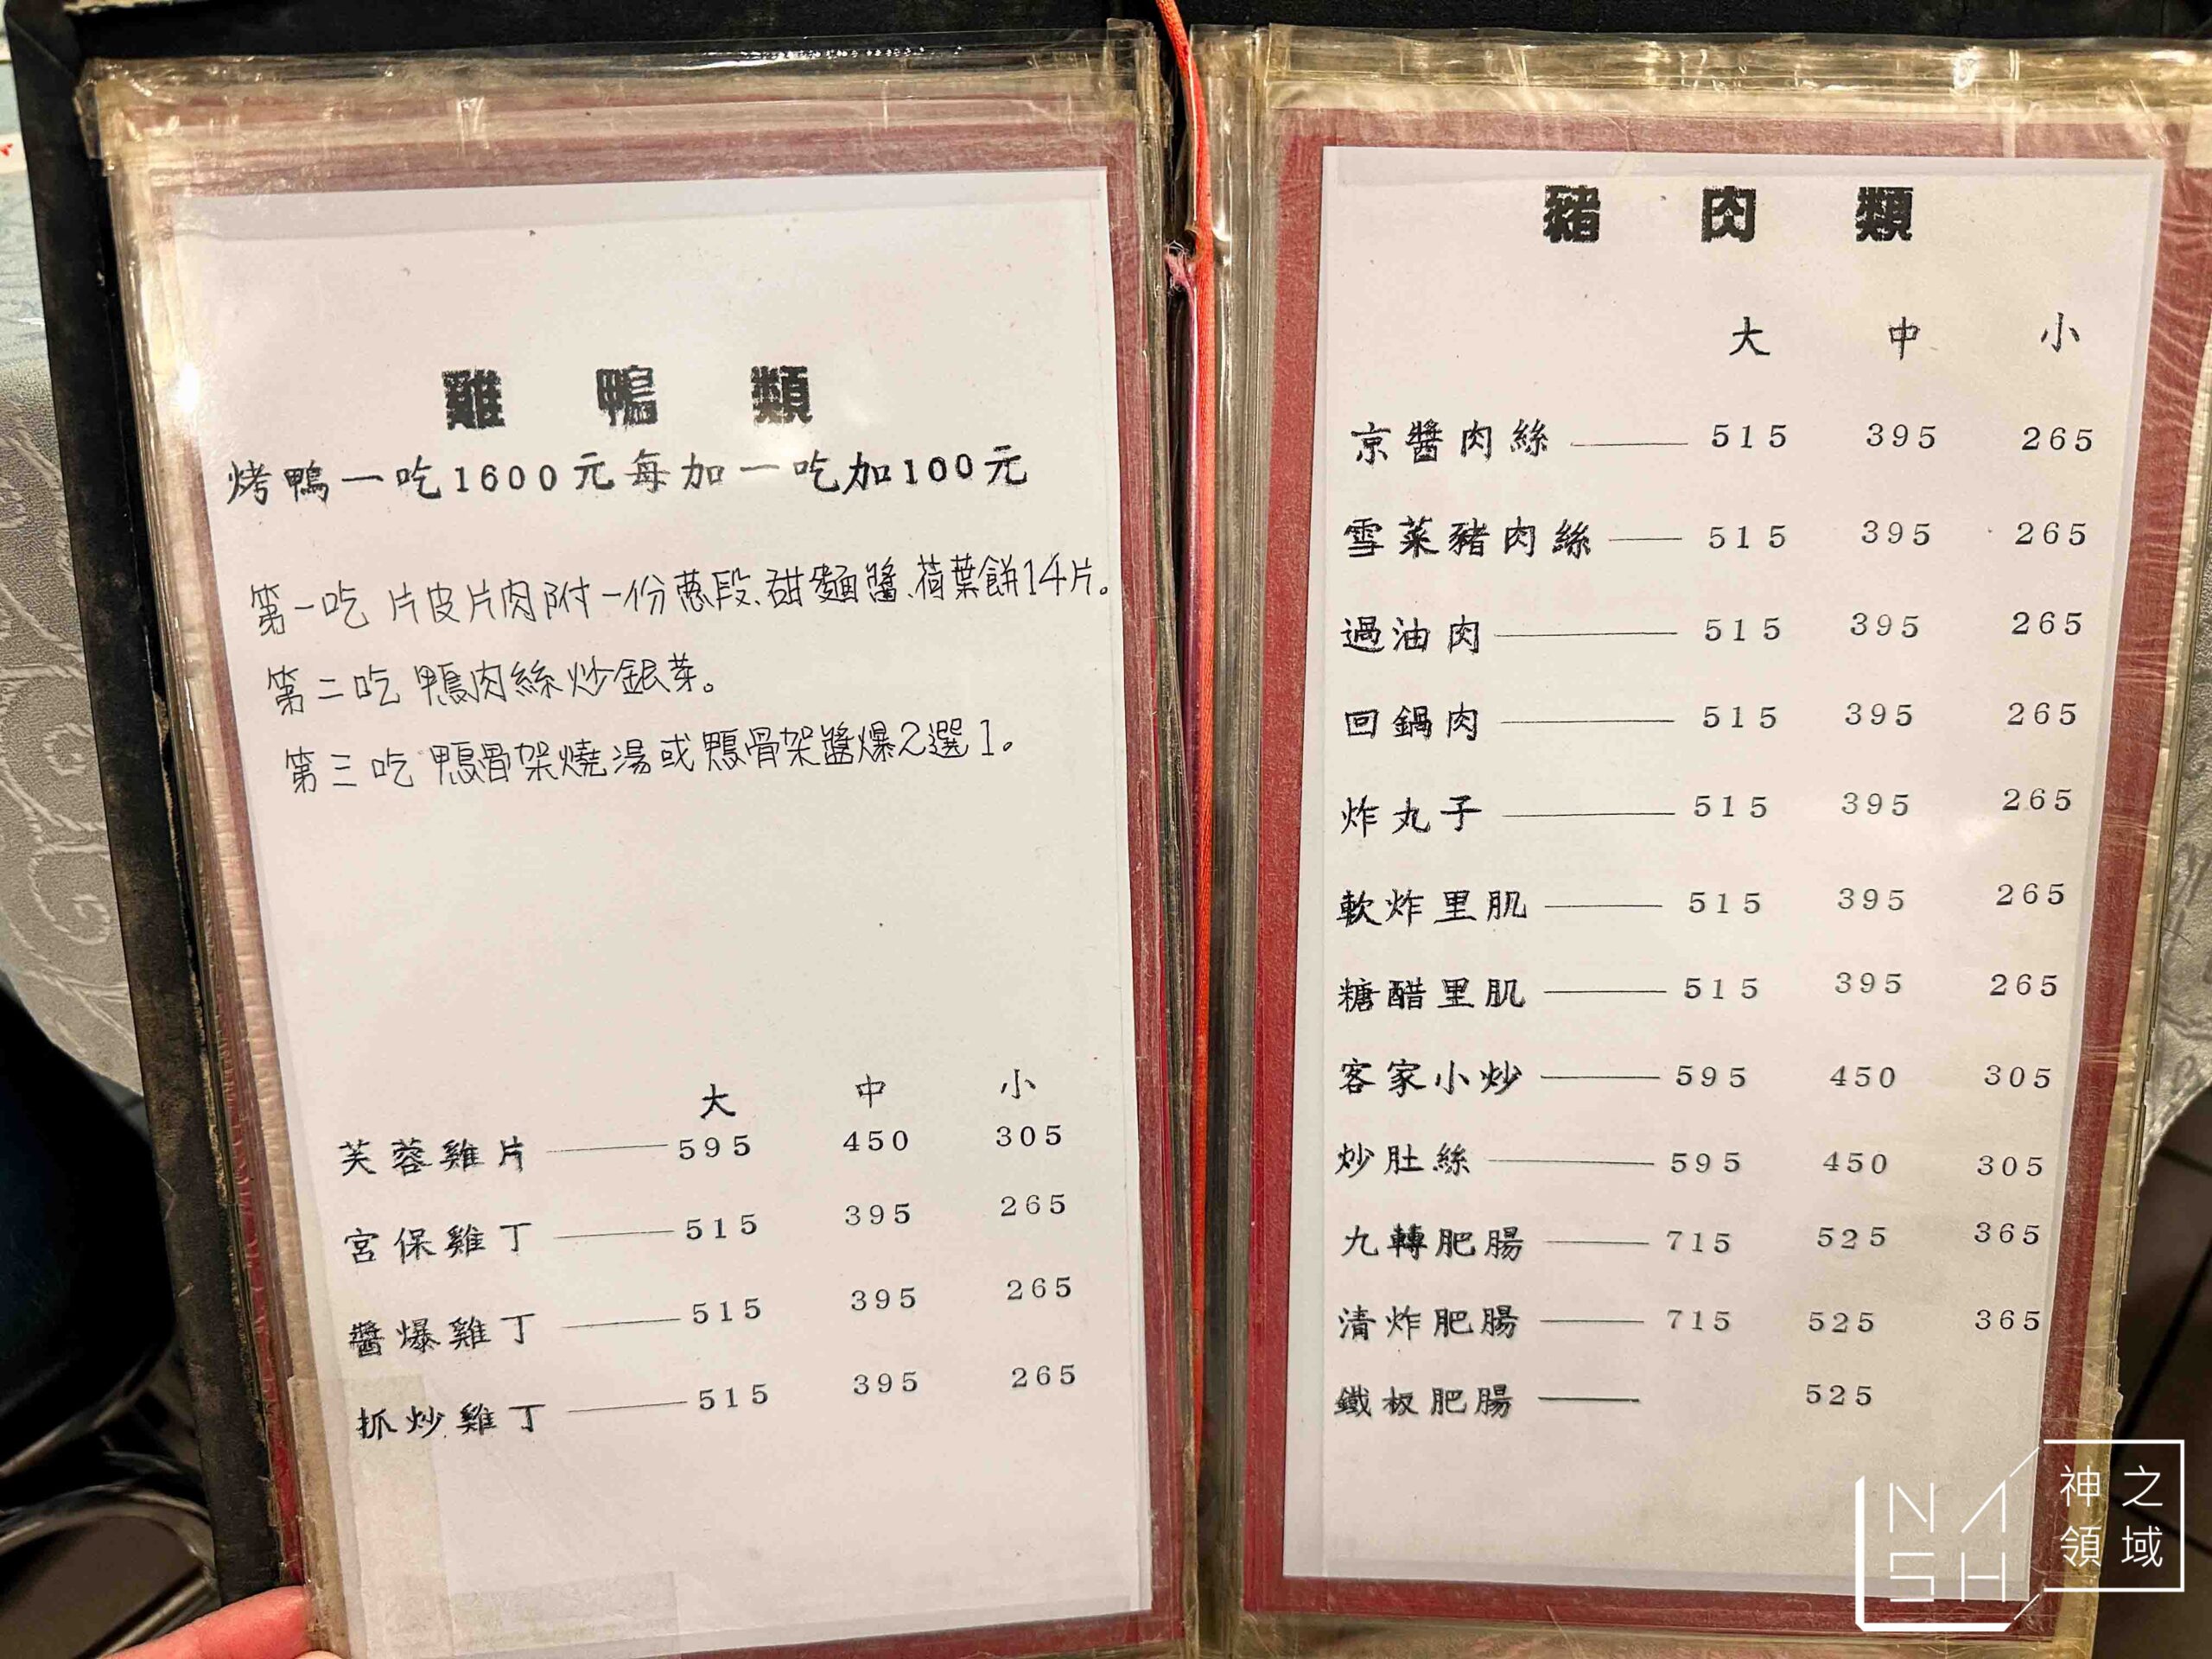 雞鴨類
烤鴨一吃1600元每加一吃加100元
第一吃 片皮片肉附一份蔥段、甜麵醬、荷葉餅14片。
第二吃 鴨肉絲炒銀芽。
第三吃 鴨骨架燒湯或鴨骨架醬爆2選1。
大 中 小
芙蓉雞片 595 450 305
宮保雞丁 515 395 265
醬爆雞丁 515 395 265
抓炒雞丁 515 395 265
豬肉類
大 中 小
京醬肉絲 515 395 265
雪菜豬肉絲 515 395 265
過油肉 515 395 265
回鍋肉 515 395 265
炸丸子 515 395 265
軟炸里肌 515 395 265
糖醋里肌 515 395 265
客家小炒 595 450 305
炒肚絲 595 450 305
九轉肥腸 715 525 365
清炸肥腸 715 525 365
鐵板肥腸 525
NASH
神之領域